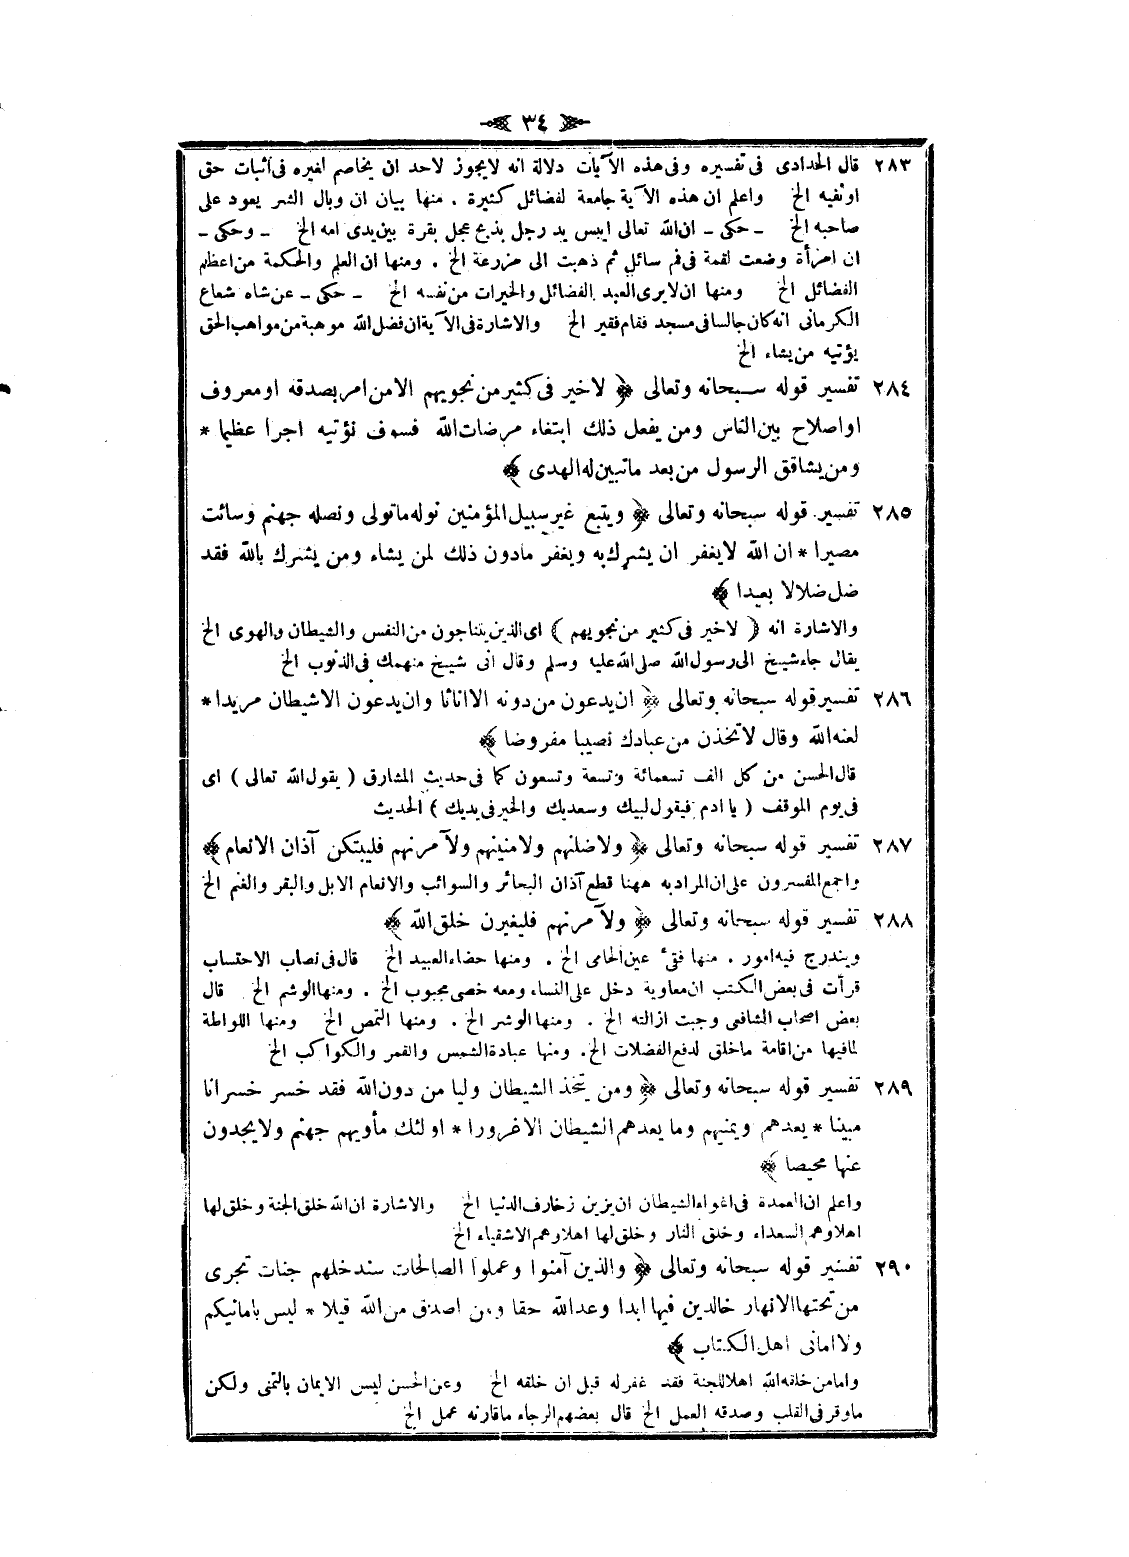 ٣٤
٢٨٣ قال الحدادى فى تفسيره وفى هذه الآيات دلالة انه لايجوز لاحد ان يخاصم لغيره فى اثبات حق
اونفيه الخ واعلم ان هذه الآية جامعة لفضائل كثيرة . منها بيان ان وبال الشر يعود على
صاحبه الخ ـ حكى ـ ان الله تعالى ايبس يد رجل بذبح عجل بقرة بين يدى امه الخ ـ وحكى ـ
ان امرأة وضعت لقمة فى فم سائل ثم ذهبت الى مزرعة الخ . ومنها ان العلم والحكمة من اعظم
الفضائل الخ ومنها ان لايرى العبد الفضائل والخيرات من نفسه الخ ـ حكى ـ عن شاه شعاع
الكرمانى انه كان جالسا فى مسجد فقام فقير الخ والاشارة فى الآية ان فضل الله موهبة من مواهب الحق
يؤتيه من يشاء الخ
٢٨٤ تفسير قوله سبحانه وتعالى ﴿ لاخير فى كثير من نجويهم الا من امر بصدقة او معروف
او اصلاح بين الناس ومن يفعل ذلك ابتغاء مرضات الله فسوف نؤتيه اجرا عظيما *
ومن يشاقق الرسول من بعد ماتبين له الهدى ﴾
٢٨٥ تفسير قوله سبحانه وتعالى ﴿ ويتبع غير سبيل المؤمنين نوله ماتولى ونصله جهنم وسائت
مصيرا * ان الله لايغفر ان يشرك به ويغفر مادون ذلك لمن يشاء ومن يشرك بالله فقد
ضل ضلالا بعيدا ﴾
والاشارة انه ( لاخير فى كثير من نجويهم ) اى الذين يتناجون من النفس والشيطان والهوى الخ
يقال جاء شيخ الى رسول الله صلى الله عليه وسلم وقال انى شيخ منهمك فى الذنوب الخ
٢٨٦ تفسير قوله سبحانه وتعالى ﴿ ان يدعون من دونه الا اناثا وان يدعون الا شيطان مريدا *
لعنه الله وقال لاتخذن من عبادك نصيبا مفروضا ﴾
قال الحسن من كل الف تسعمائة وتسعة وتسعون كما فى حديث المشارق ( يقول الله تعالى ) اى
فى يوم الموقف ( يا ادم فيقول لبيك وسعديك والخير فى يديك ) الحديث
٢٨٧ تفسير قوله سبحانه وتعالى ﴿ ولاضلنهم ولامنينهم ولآمرنهم فليبتكن آذان الانعام ﴾
واجمع المفسرون على ان المراد به ههنا قطع آذان البحائر والسوائب والانعام الابل والبقر والغنم الخ
٢٨٨ تفسير قوله سبحانه وتعالى ﴿ ولآمرنهم فليغيرن خلق الله ﴾
ويندرج فيه امور . منها فقىء عين الحامى الخ . ومنها خصاء العبيد الخ قال فى نصاب الاحتساب
قرأت فى بعض الكتب ان معاوية دخل على النساء ومعه خصى مجبوب الخ . ومنها الوشم الخ قال
بعض اصحاب الشافى وجبت ازالته الخ . ومنها الوشر الخ . ومنها التمص الخ ومنها اللواطة
لمافيها من اقامة ماخلق لدفع الفضلات الخ . ومنها عبادة الشمس والقمر والكواكب الخ
٢٨٩ تفسير قوله سبحانه وتعالى ﴿ ومن يتخذ الشيطان وليا من دون الله فقد خسر خسرانا
مبينا * يعدهم ويمنيهم وما يعدهم الشيطان الا غرورا * اولئك مأويهم جهنم ولايجدون
عنها محيصا ﴾
واعلم ان العمدة فى اغواء الشيطان ان يزين زخارف الدنيا الخ والاشارة ان الله خلق الجنة وخلق لها
اهلا وهم السعداء وخلق النار وخلق لها اهلا وهم الاشقياء الخ
٢٩٠ تفسير قوله سبحانه وتعالى ﴿ والذين آمنوا وعملوا الصالحات سندخلهم جنات تجرى
من تحتها الانهار خالدين فيها ابدا وعد الله حقا ومن اصدق من الله قيلا * ليس بامانيكم
ولا امانى اهل الكتاب ﴾
واما من خلقه الله اهلا للجنة فقد غفر له قبل ان خلقه الخ وعن الحسن ليس الايمان بالتمنى ولكن
ماوقر فى القلب وصدقه العمل الخ قال بعضهم الرجاء ماقارنه عمل الخ